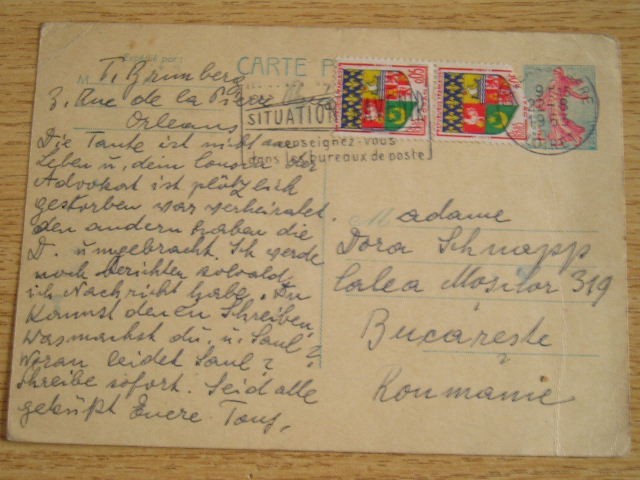 Expédié par:
CARTE
M T. Grünberg
3, Rue de la Pierre
Orleans
SITUATION
renseignez-vous
dans les bureaux de poste
Die Tante ist nicht am
Leben u. dein Cousin der
Advokat ist plötzlich
gestorben war verheiratet.
den andern haben die
D. umgebracht. Ich werde
noch berichten sobald
ich Nachricht habe. Du
kannst denen Schreiben
was machst du. u. Saul?
Woran leidet Saul?
Schreibe sofort. Seid alle
geküßt Euere
Madame
Dora Schnapp
Calea Moșilor 319
Bucareste
Roumanie